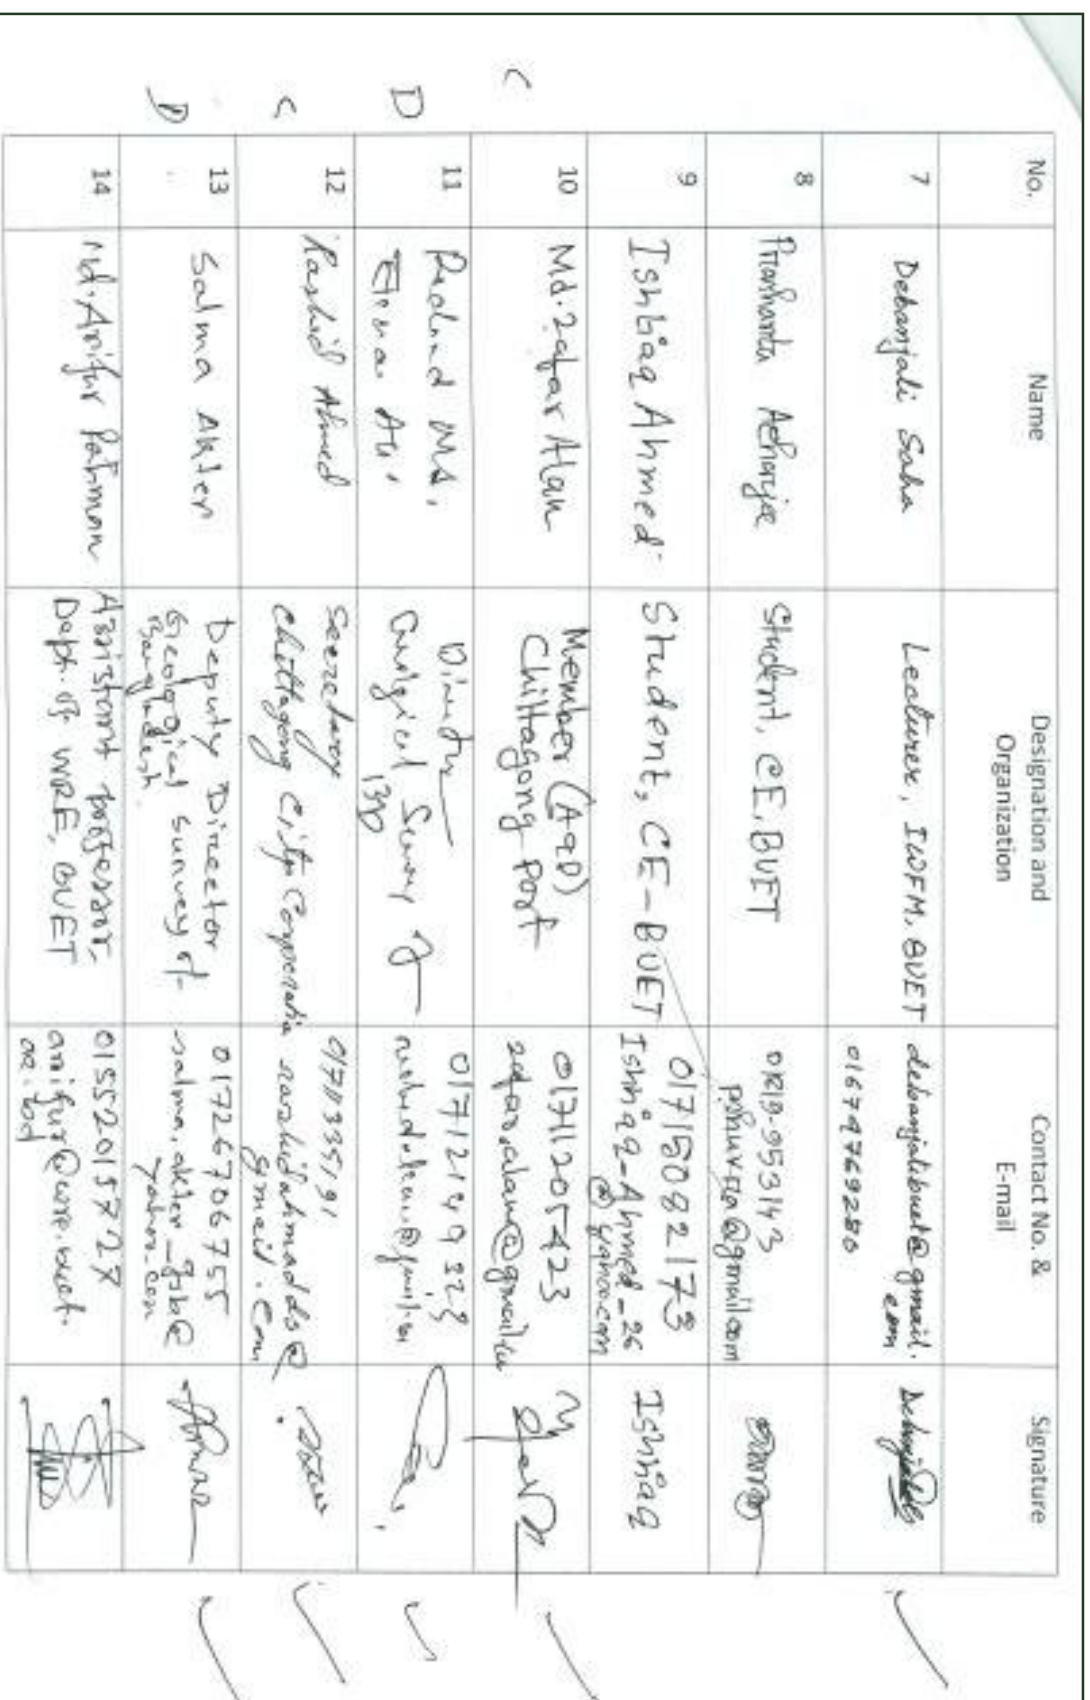 No.
Name
Designation and
Organization
Contact No. &
E-mail
Signature
7
Debanjali Saha
Lecturer, IWFM, BUET
debanjalibuet@gmail.
com
01674769280
8
Student, CE, BUET
@gmail.com
9
Ishtiaq Ahmed
Student, CE-BUET
01715082173
Ishtiaq-Ahmed_26
@yahoo.com
Ishtiaq
C
10
Md. Zafar Alam
Member (A&P)
Chittagong Port
01711205423
zafar.alam@gmail.
D
11
Director
Survey of
01712149323
C
12
Rashid Ahmed
Secretary
Chittagong City Corporation
rashidahmadds@
gmail.com
D
13
Salma Akter
Deputy Director
Geological Survey of
Bangladesh
01726706755
salma.akter_gsb@
yahoo.com
14
Md. Arifur Rahman
Assistant professor,
Dept. of WRE, BUET
01552015727
arifur@wre.buet.
ac.bd